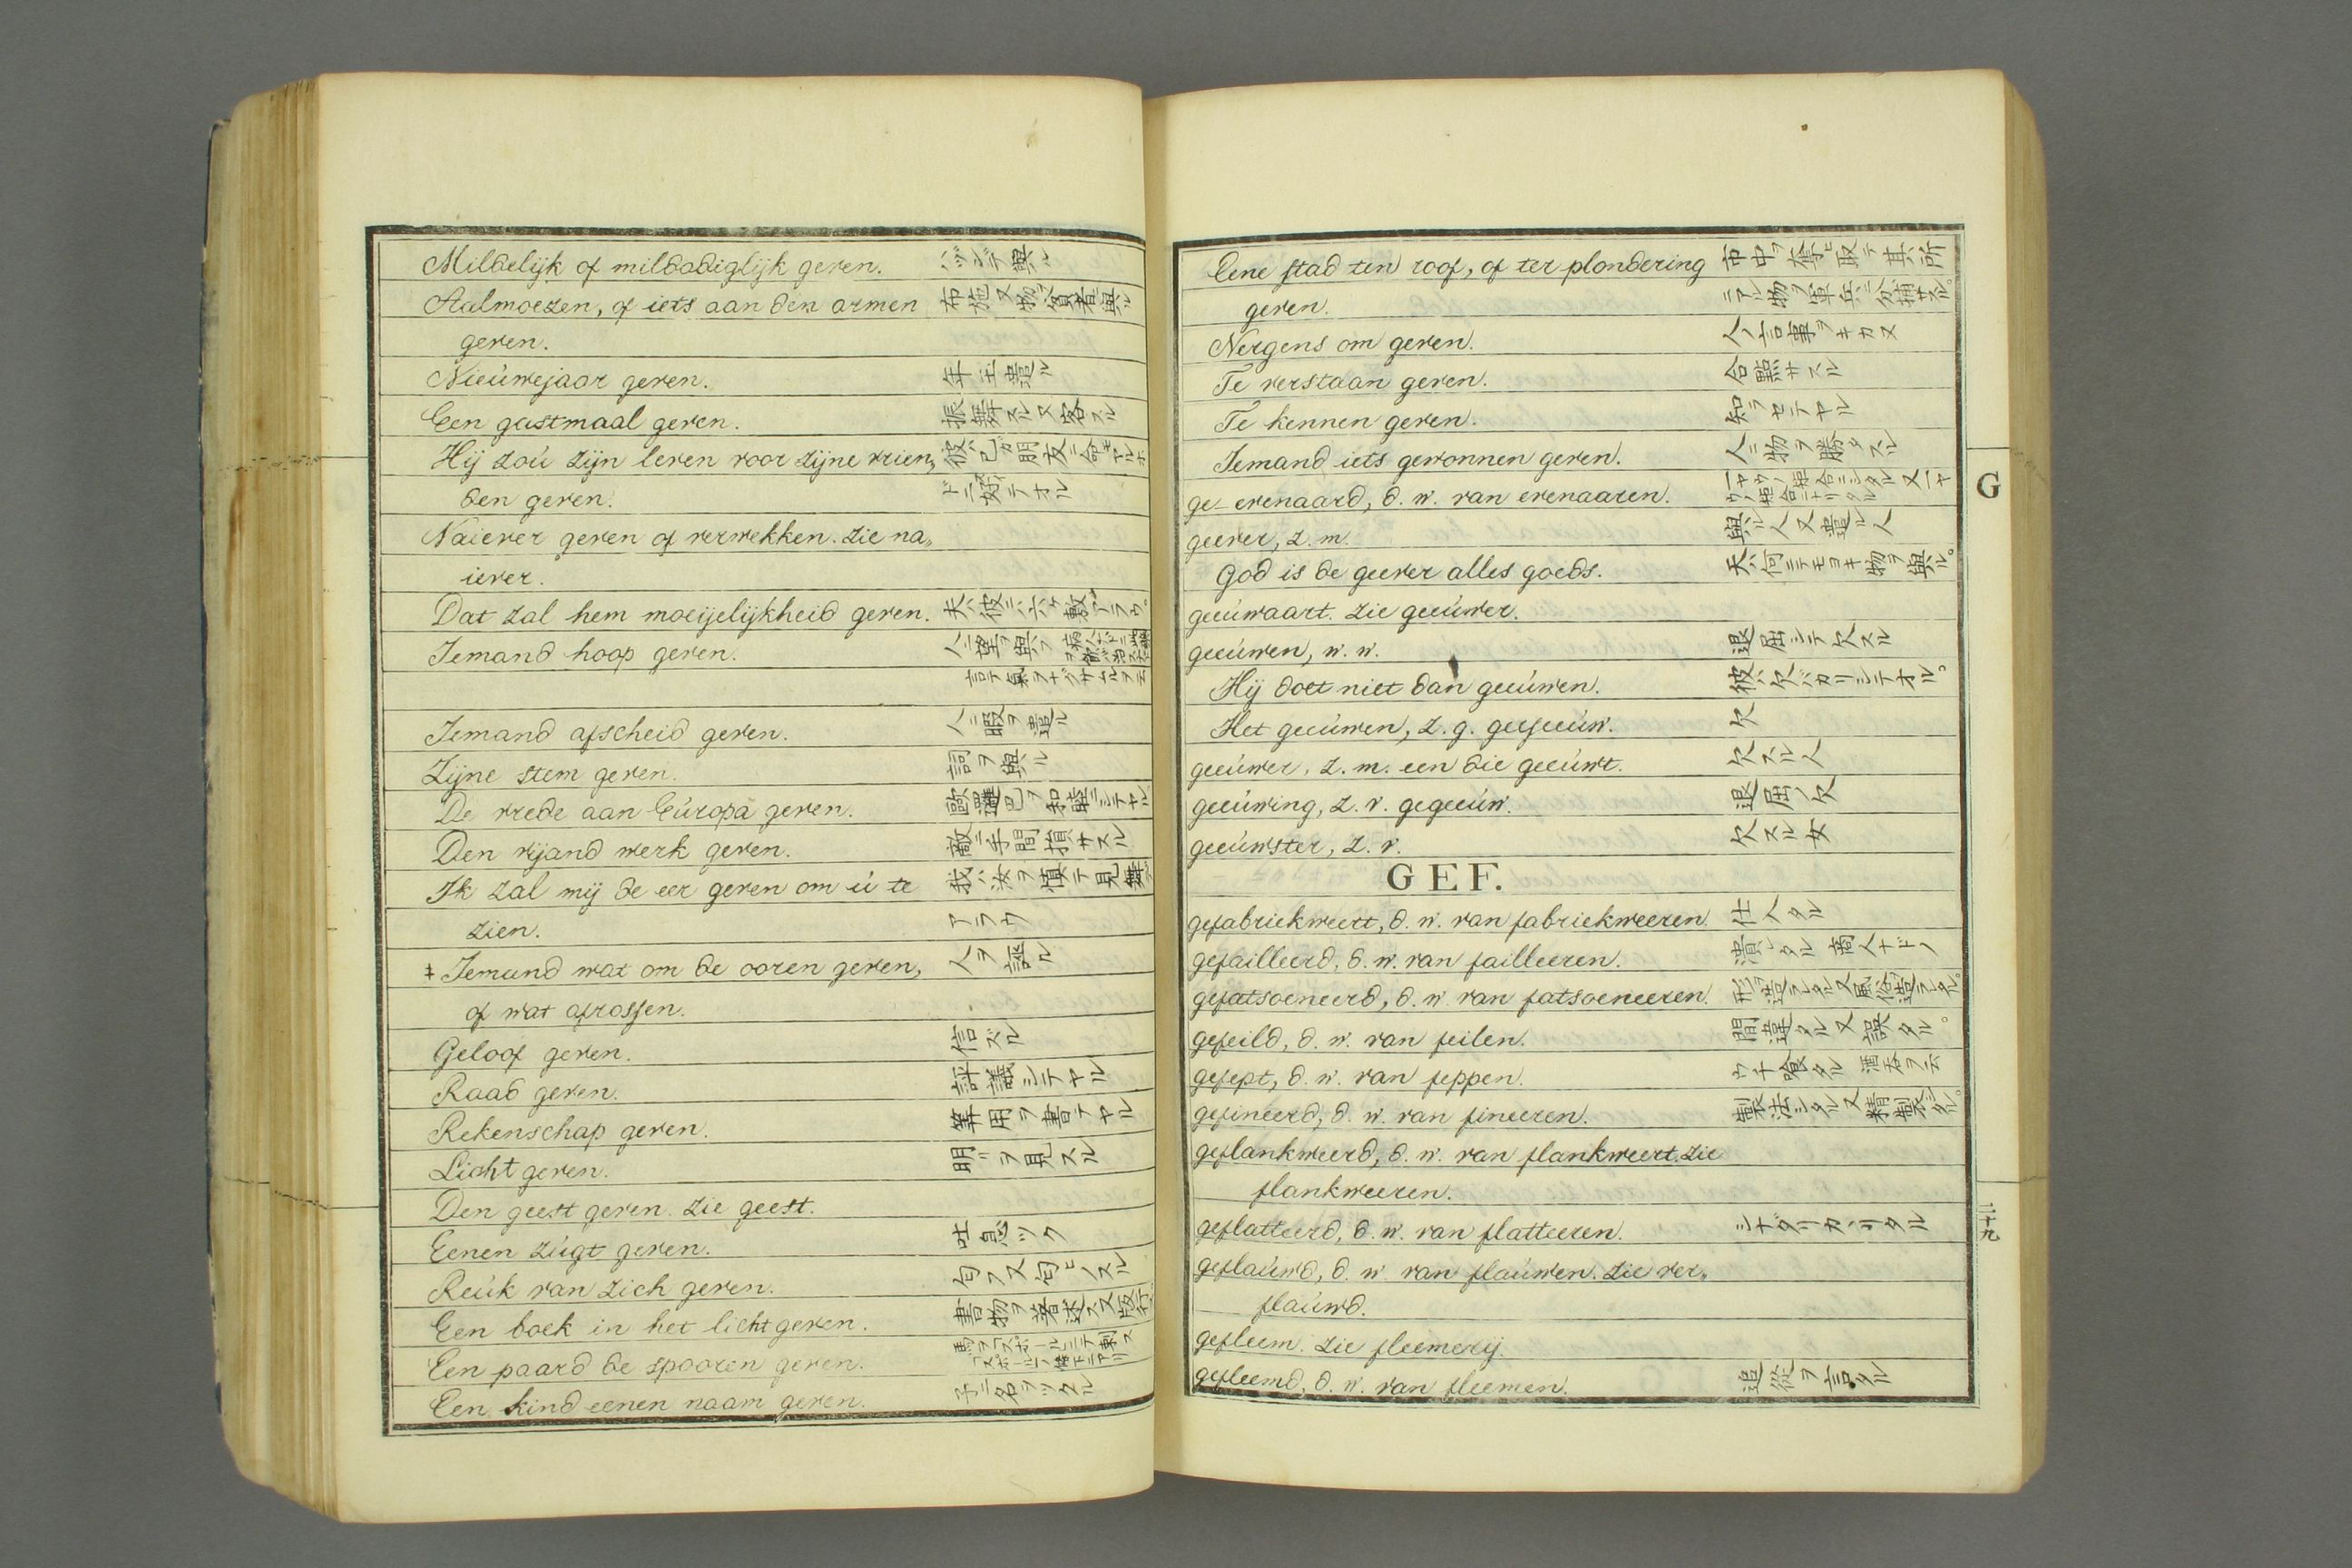 Mildelijk of mildadiglijk geven. ハズンデ與ル
Aalmoezen, of iets aan den armen 布施又物ヲ貧者ニ與ル
geven.
Nieúwejaar geven. 年玉遣ル
Een gastmaal geven. 振舞スル又客スル
Hij zoú zijn leven voor zijne vrien„
den geven.
Naiever geven of verwekken. zie na„
iever.
Dat zal hem moeijelijkheid geven.
Iemand hoop geven.
Iemand afscheid geven. 人ニ暇ヲ遣ル
Zijne stem geven. 詞ヲ與ル
De vrede aan Eúropa geven. 歐羅巴ヲ和睦ニシテヤル
Den vijand werk geven. 敵ニ手間損サスル
Ik zal mij de eer geven om ú te
zien.
‡ Iemand wat om de ooren geven, 人ヲ誣ル
of wat afrossen.
Geloof geven. 信ズル
Raad geven. 評議シテヤル
Rekenschap geven. 筭用ヲ書テヤル
Licht geven. 明リヲ見スル
Den geest geven. zie geest.
Eenen zúgt geven. 吐息ツク
Reúk van zich geven.
Een boek in het licht geven. 書物ヲ著述スル又版行
Een paard de spooren geven.
Een kind eenen naam geven. 子ニ名ヲツクル
Eene stad ten roof, of ter plondering 市中ヲ奪ヒ取テ其所
geven. ニアル物ヲ軍兵ニ分捕サスル。
Nergens om geven. 人ノ言事ヲキカヌ
Te verstaan geven. 合點サスル
Te kennen geven. 知ラセテヤル
Iemand iets gewonnen geven. 人ニ物ヲ勝タスル
ge-evenaard, d. w. van evenaaren.
geever, z. m. 與ル人又遣ル人
God is de geever alles goeds. 天ハ何ニテモヨキ物ヲ與ル。
geeúwaart. zie geeúwer.
geeúwen, w. w. 退屈シテ欠スル
Hij doet niet dan geeúwen. 彼ハ欠バカリシテオル。
Het geeúwen, z. g. gegeeúw. 欠
geeúwer, z. m. een die geeúwt. 欠スル人
geeúwing, z. v. gegeeúw. 退屈ノ欠
geeúwster, z. v. 欠スル女
GEF.
gefabriekweert, d. w. van fabriekweeren. 仕入タル
gefailleerd, d. w. van failleeren. 潰レタル 商人ナドノ
gefatsoeneerd, d. w. van fatsoeneeren.
gefeild, d. w. van feilen. 間違タル又誤タル。
gefept, d. w. van feppen.
gefineerd, d. w. van fineeren. 製法シタル又精製シタル。
geflankweerd, d. w. van flankweert. zie
flankweeren.
geflatteerd, d. w. van flatteeren. シナダリカヽリタル
geflaúwd, d. w. van flaúwen. zie ver„
flaúwd.
gefleem. zie fleemerij.
gefleemd, d. w. van fleemen. 追從ヲ言タル
G
二十九